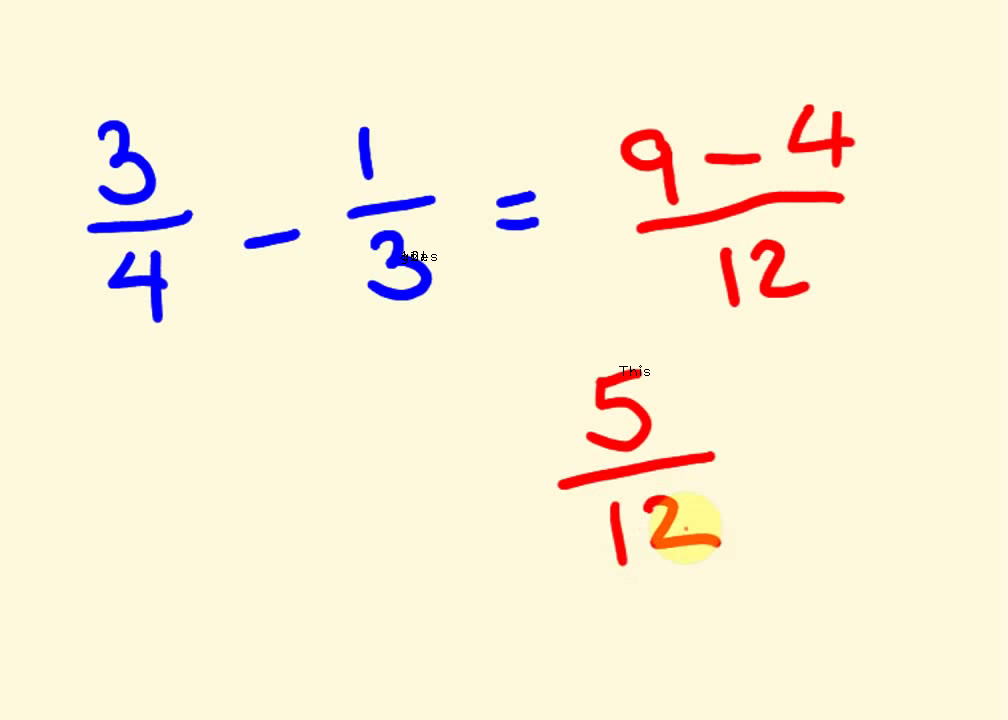 3/4 - 1/3 = 9 - 4/12
This
5/12